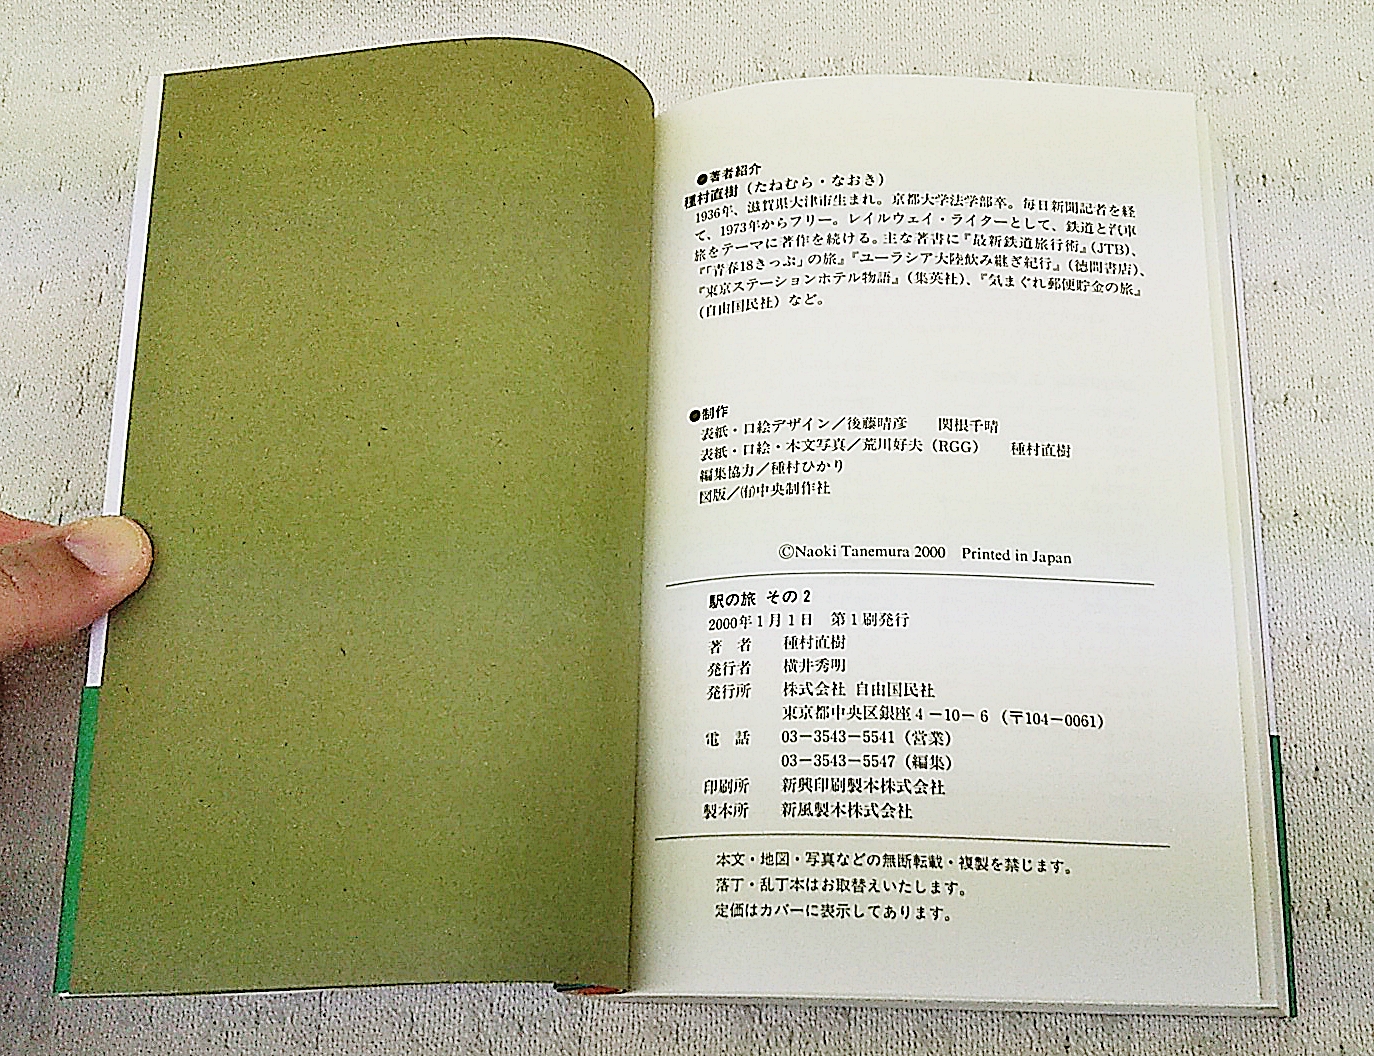 ●著者紹介
種村直樹（たねむら・なおき）
1936年、滋賀県大津市生まれ。京都大学法学部卒。毎日新聞記者を経
て、1973年からフリー。レイルウェイ・ライターとして、鉄道と汽車
旅をテーマに著作を続ける。主な著書に『最新鉄道旅行術』（JTB）、
『「青春18きっぷ」の旅』『ユーラシア大陸飲み継ぎ紀行』（徳間書店）、
『東京ステーションホテル物語』（集英社）、『気まぐれ郵便貯金の旅』
（自由国民社）など。
●制作
表紙・口絵デザイン／後藤晴彦　関根千晴
表紙・口絵・本文写真／荒川好夫（RGG）　種村直樹
編集協力／種村ひかり
図版／㈲中央制作社
©Naoki Tanemura 2000　Printed in Japan
駅の旅 その2
2000年1月1日　第1刷発行
著　者　種村直樹
発行者　横井秀明
発行所　株式会社 自由国民社
東京都中央区銀座4－10－6（〒104－0061）
電　話　03－3543－5541（営業）
03－3543－5547（編集）
印刷所　新興印刷製本株式会社
製本所　新風製本株式会社
本文・地図・写真などの無断転載・複製を禁じます。
落丁・乱丁本はお取替えいたします。
定価はカバーに表示してあります。